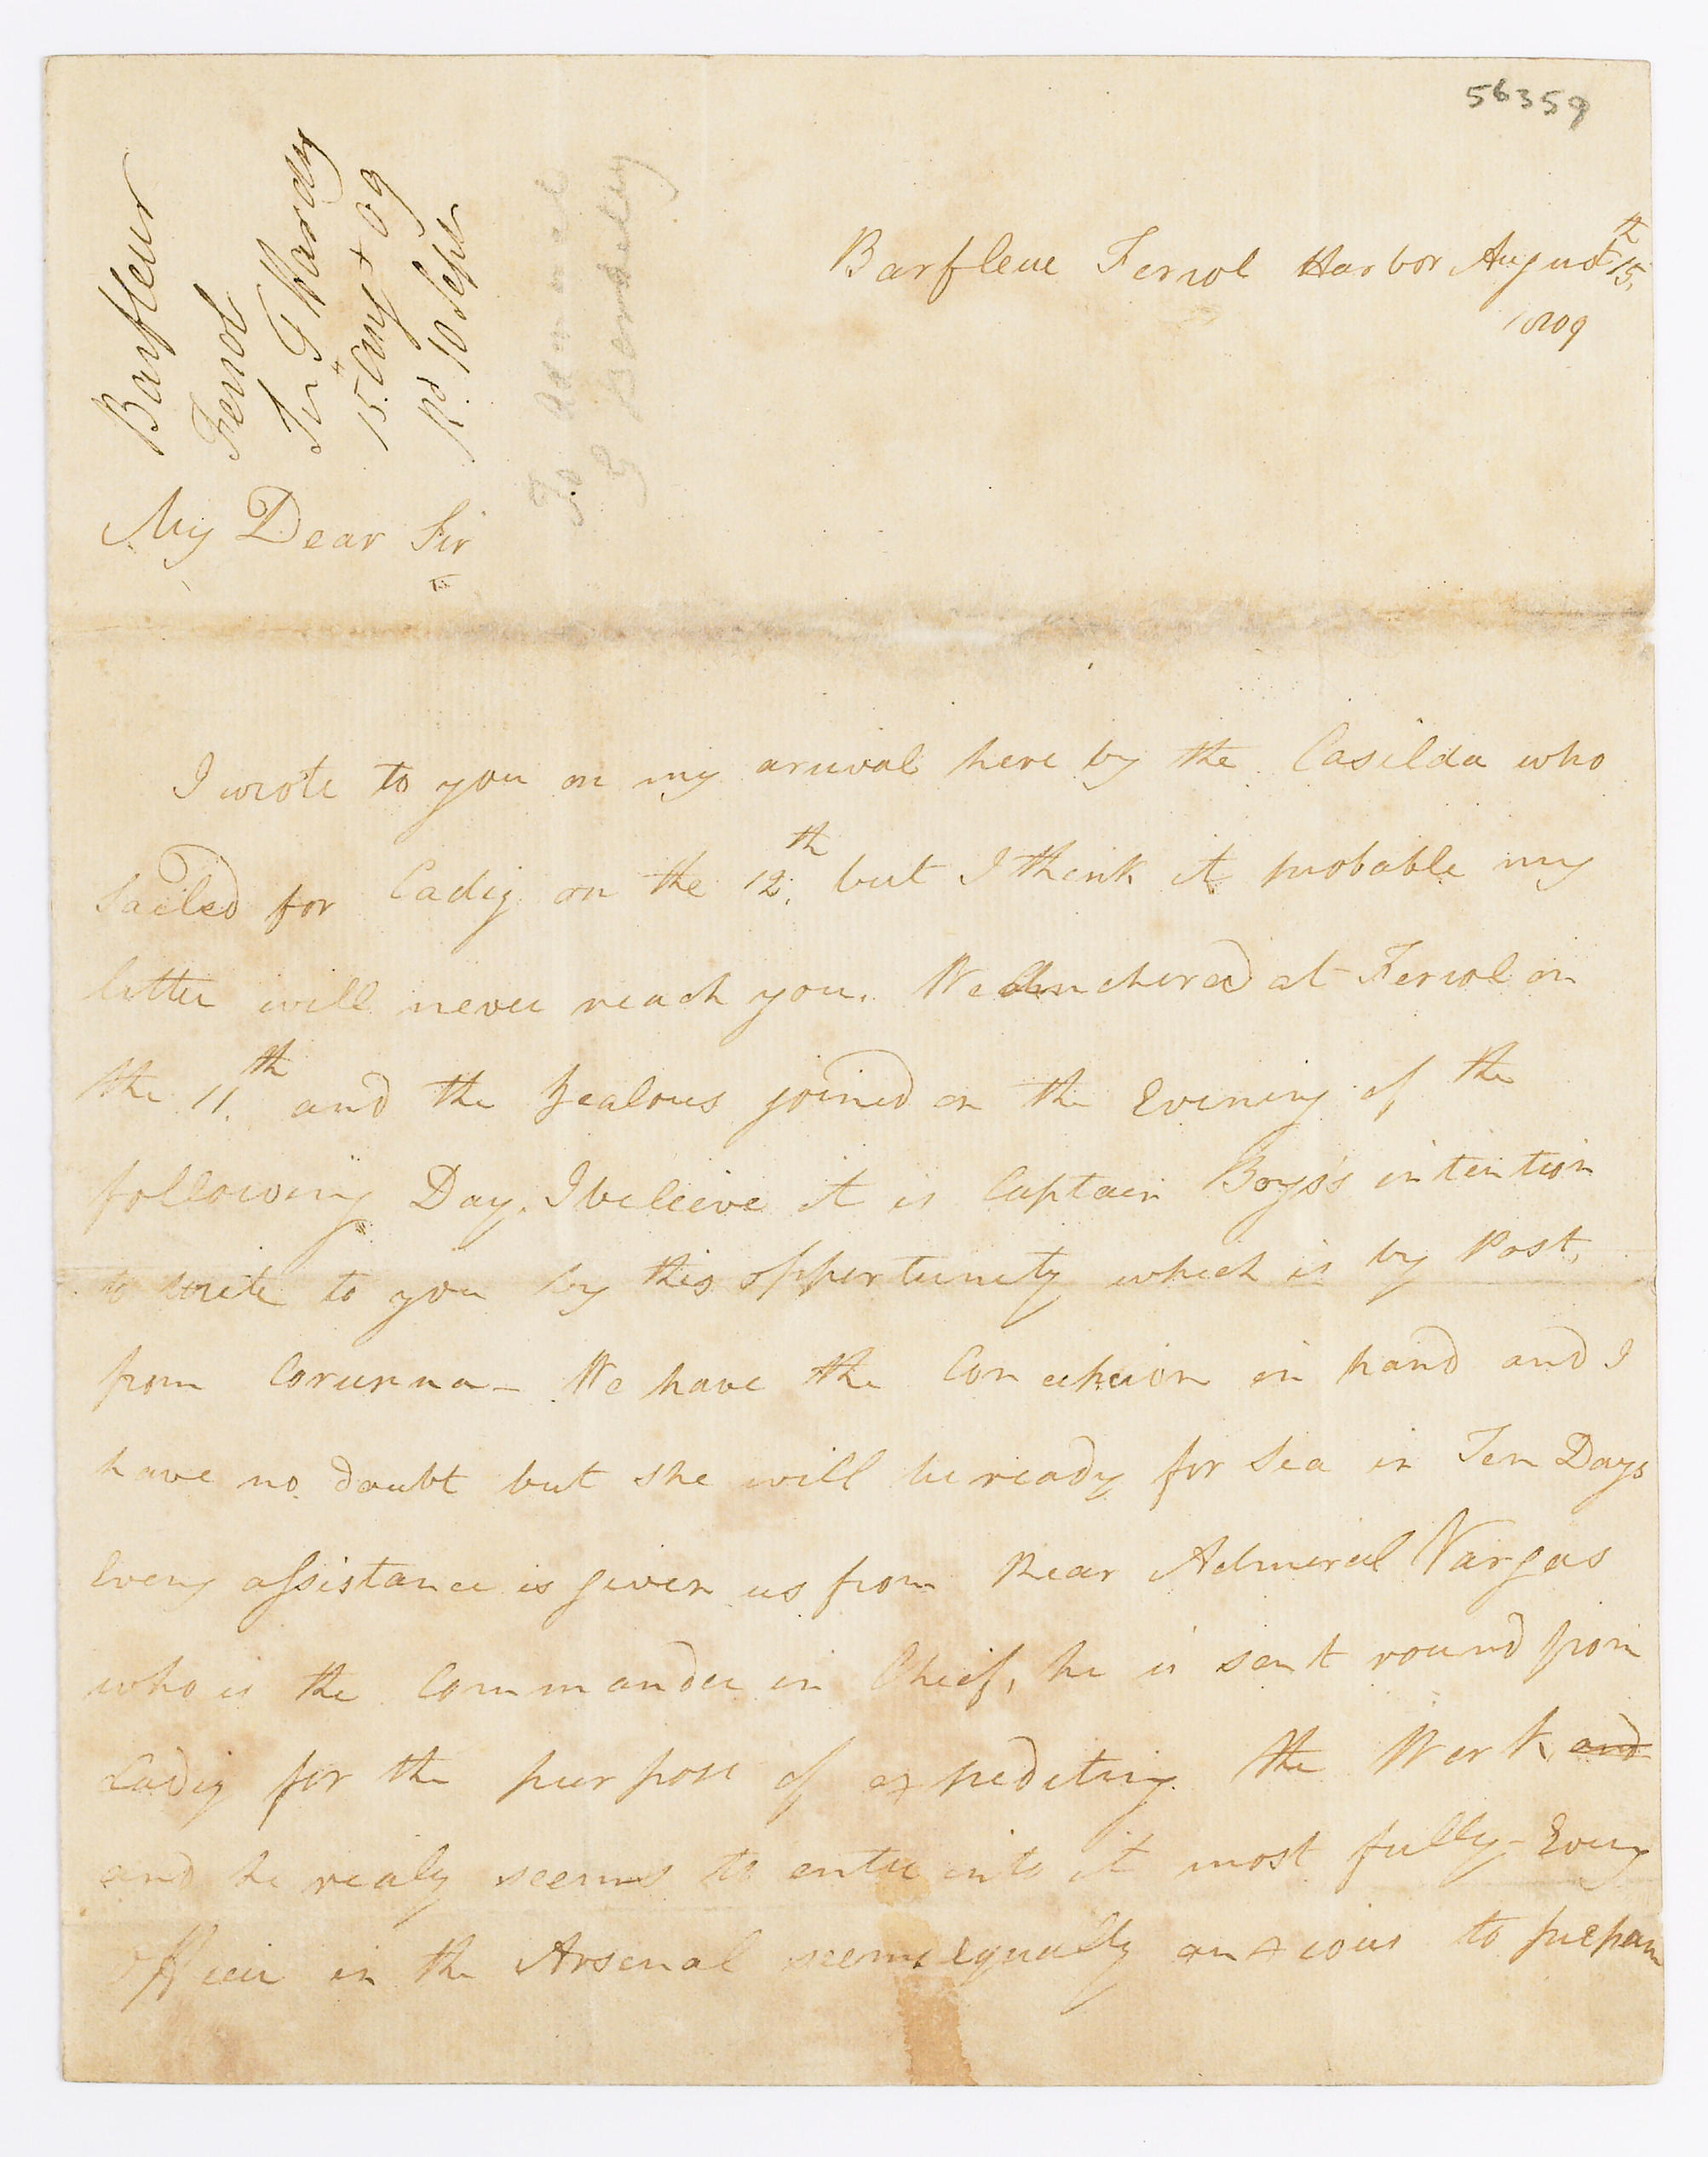 56359
Barfleur
Ferrol
Sir T Hardy
15th Augt 09
Rd. 10 Sepr
To Admiral
G Berkeley
Barfleur Ferrol Harbor August 15th,
1809
My Dear Sir
I wrote to you on my arrival here by the Casilda who
Sailed for Cadiz on the 12th, but I think it probable my
letter will never reach you. We Anchered at Ferrol on
the 11th. and the Zealous joined on the Evening of the
following Day. I beleive it is Captain Boys's intention
to write to you by this oppertunity which is by Post,
from Corunna - We have the Concepcion in hand and I
have no doubt but she will be ready for Sea in Ten Days
Every assistance is given us from Rear Admiral Vargas
who is the Commander in Chief, he is sent round from
Cadiz for the purpose of expediting the Work and
and he realy seems to enter into it most fully - Every
Officer in the Arsenal seems equally anxious to prepare